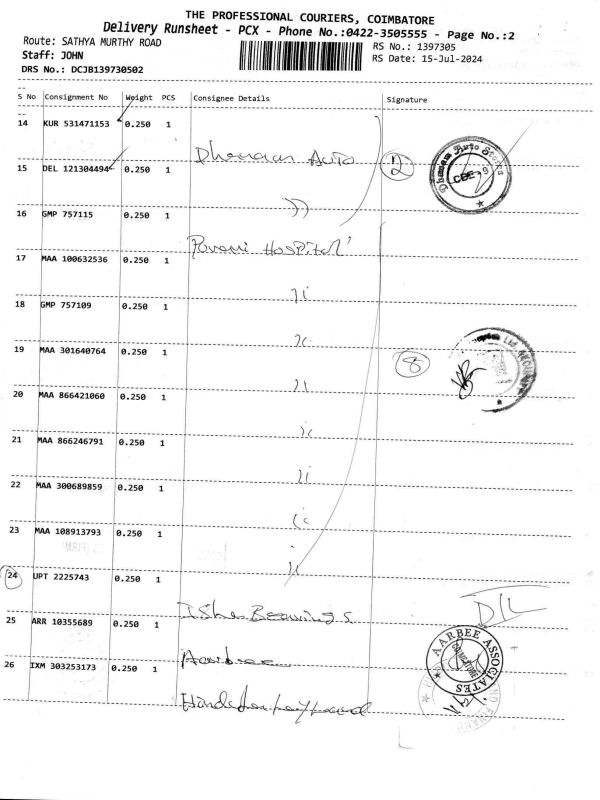 THE PROFESSIONAL COURIERS, COIMBATORE
Delivery Runsheet - PCX - Phone No.:0422-3505555 - Page No.:2
Route: SATHYA MURTHY ROAD
RS No.: 1397305
Staff: JOHN
RS Date: 15-Jul-2024
DRS No.: DCJB139730502
--
S No Consignment No Weight PCS Consignee Details Signature
--
14 KUR 531471153 0.250 1
Dhanam Auto
2
Dhanam Auto Stores
CBE - 9
15 DEL 121304494 0.250 1
))
16 GMP 757115 0.250 1
Hospital
17 MAA 100632536 0.250 1
18 GMP 757109 0.250 1
19 MAA 301640764 0.250 1
8
20 MAA 866421060 0.250 1
21 MAA 866246791 0.250 1
22 MAA 300689859 0.250 1
23 MAA 108913793 0.250 1
24 UPT 2225743 0.250 1
Bearings
D/L
25 ARR 10355689 0.250 1
Aarbee
AARBEE ASSOCIATES
COIMBATORE
26 IXM 303253173 0.250 1